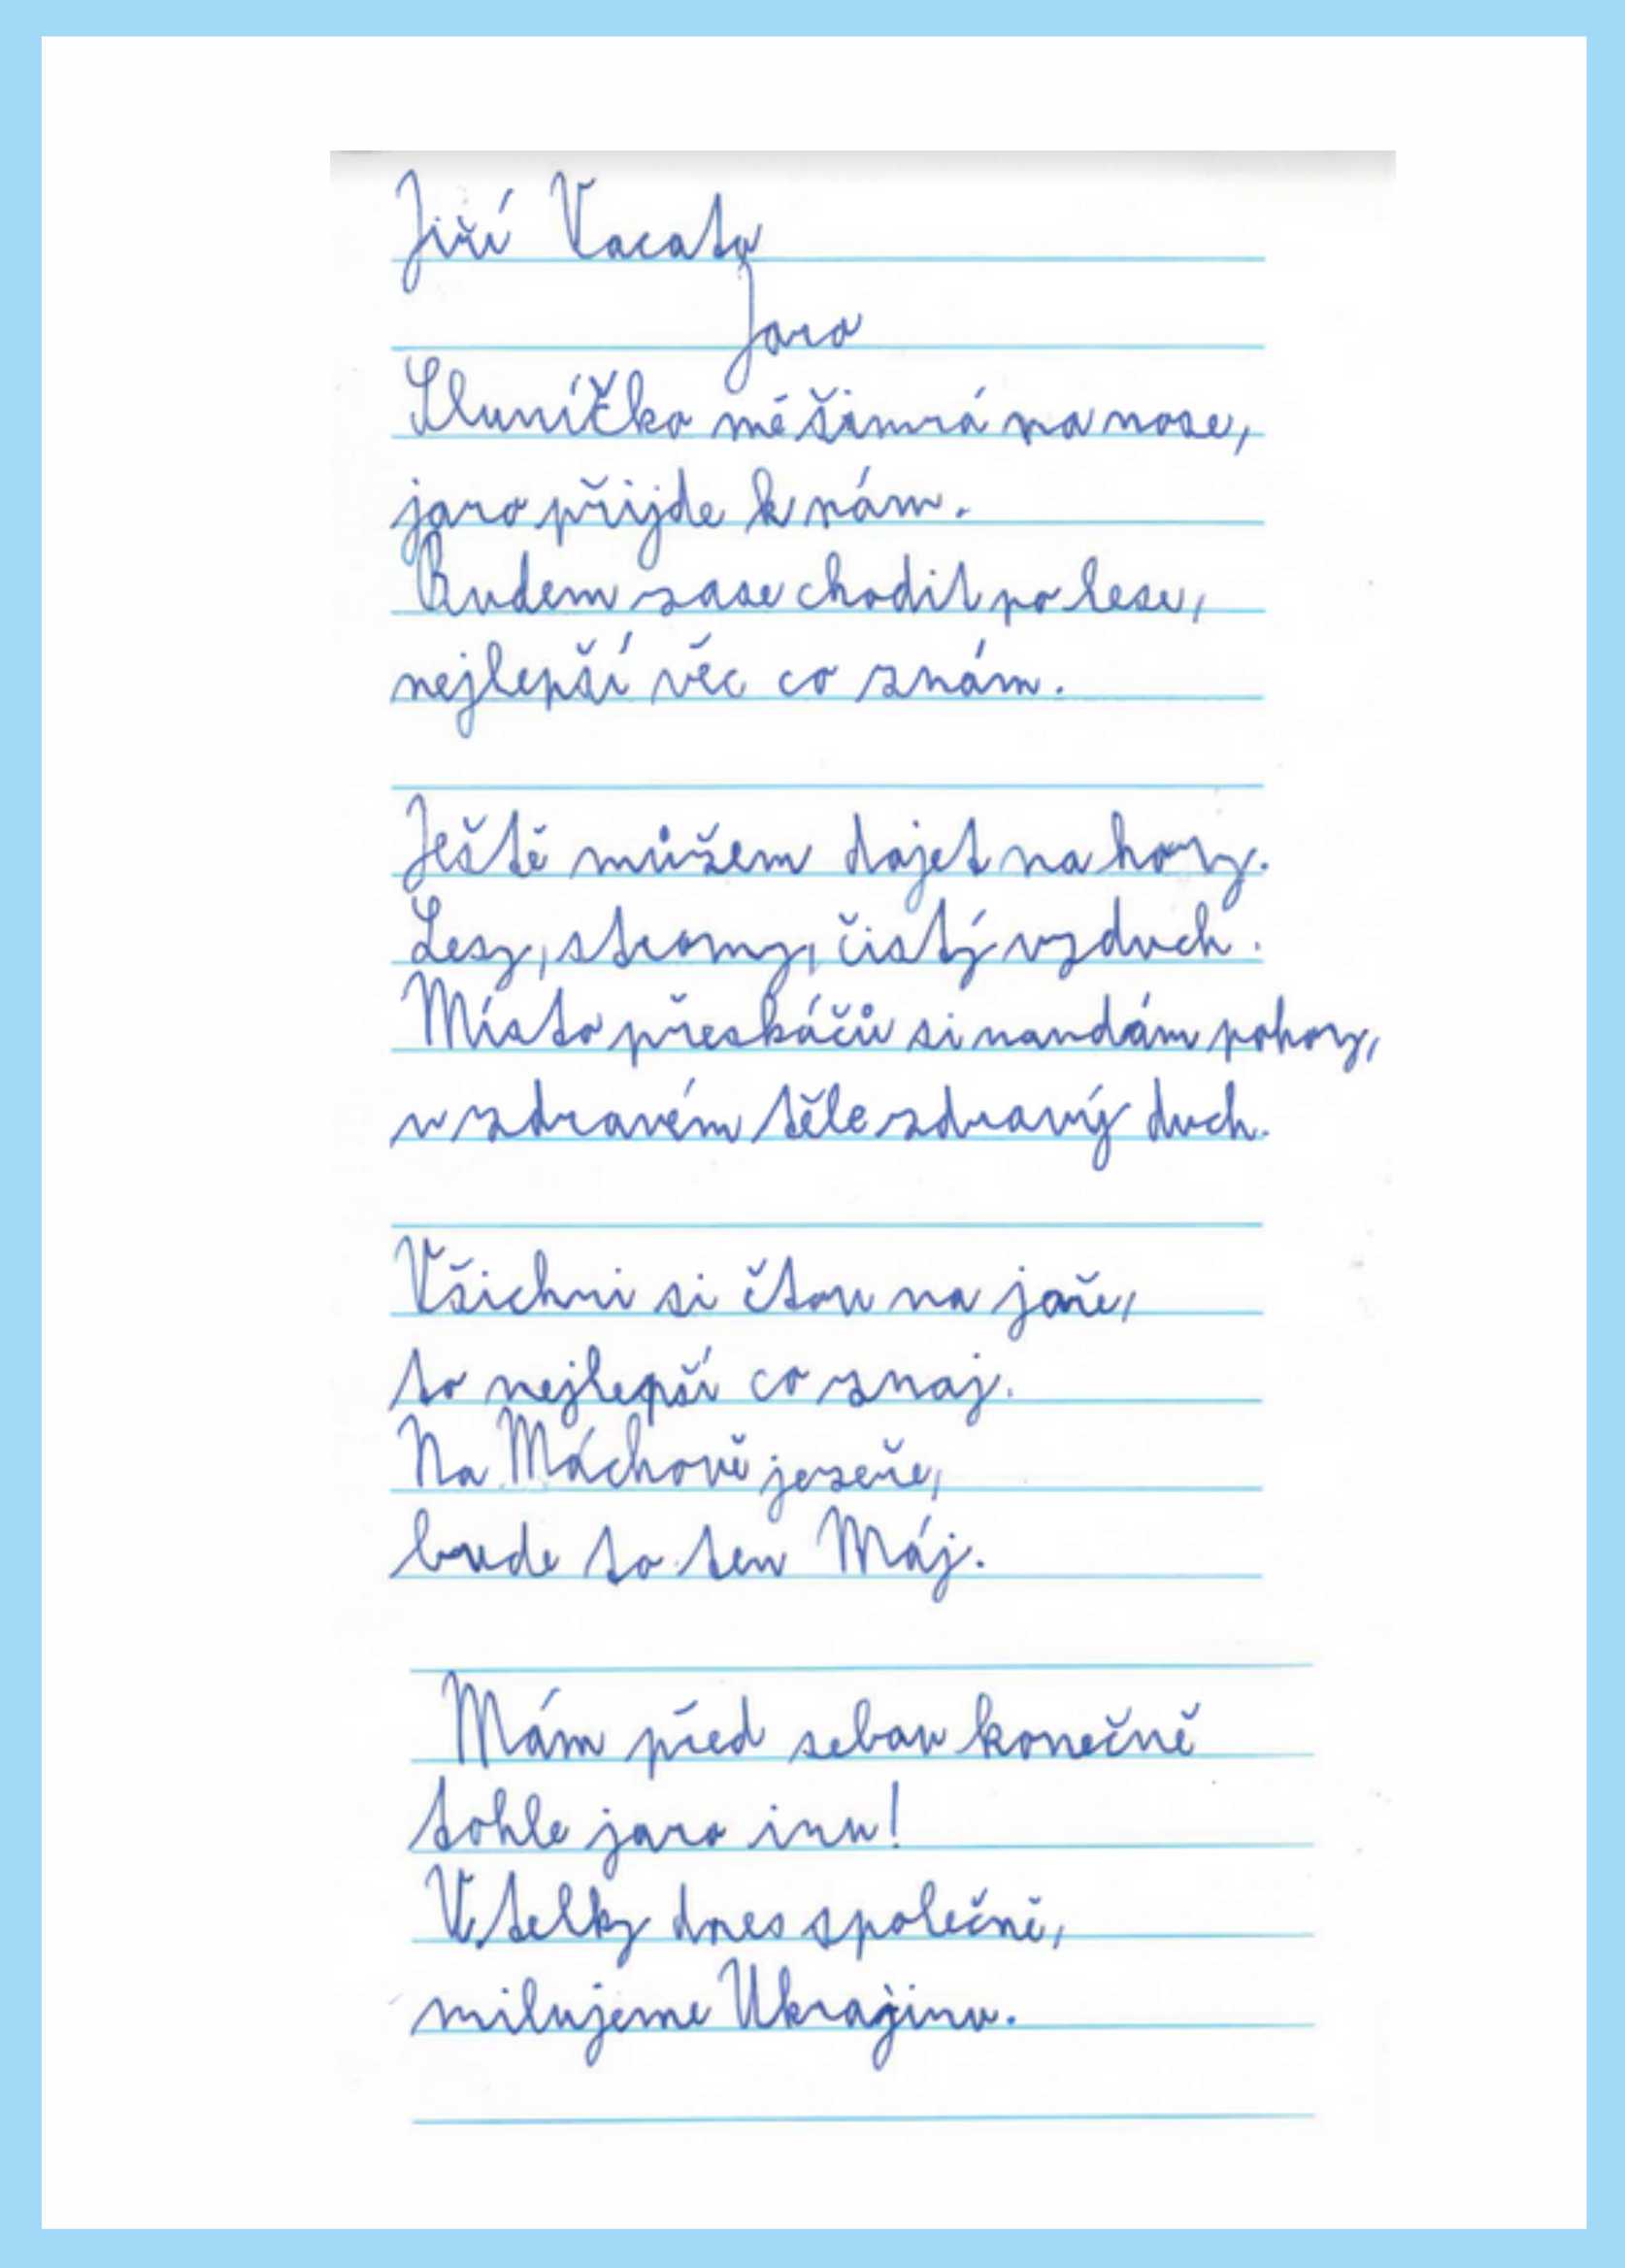 Jiří Vacata
Jaro
Sluníčko mě šimrá na nose,
jaro přijde k nám.
Budem zase chodit po lese,
nejlepší věc co znám.
Ještě můžem dojet na hory.
Lesy, stromy, čistý vzduch.
Místo přeskáčů si nandám pohory,
v zdravém těle zdravý duch.
Všichni si čtou na jaře,
to nejlepší co znaj.
Na Máchově jezeře,
bude to ten Máj.
Mám před sebou konečně
tohle jaro inu!
V telky dnes společně,
milujeme Ukrajinu.